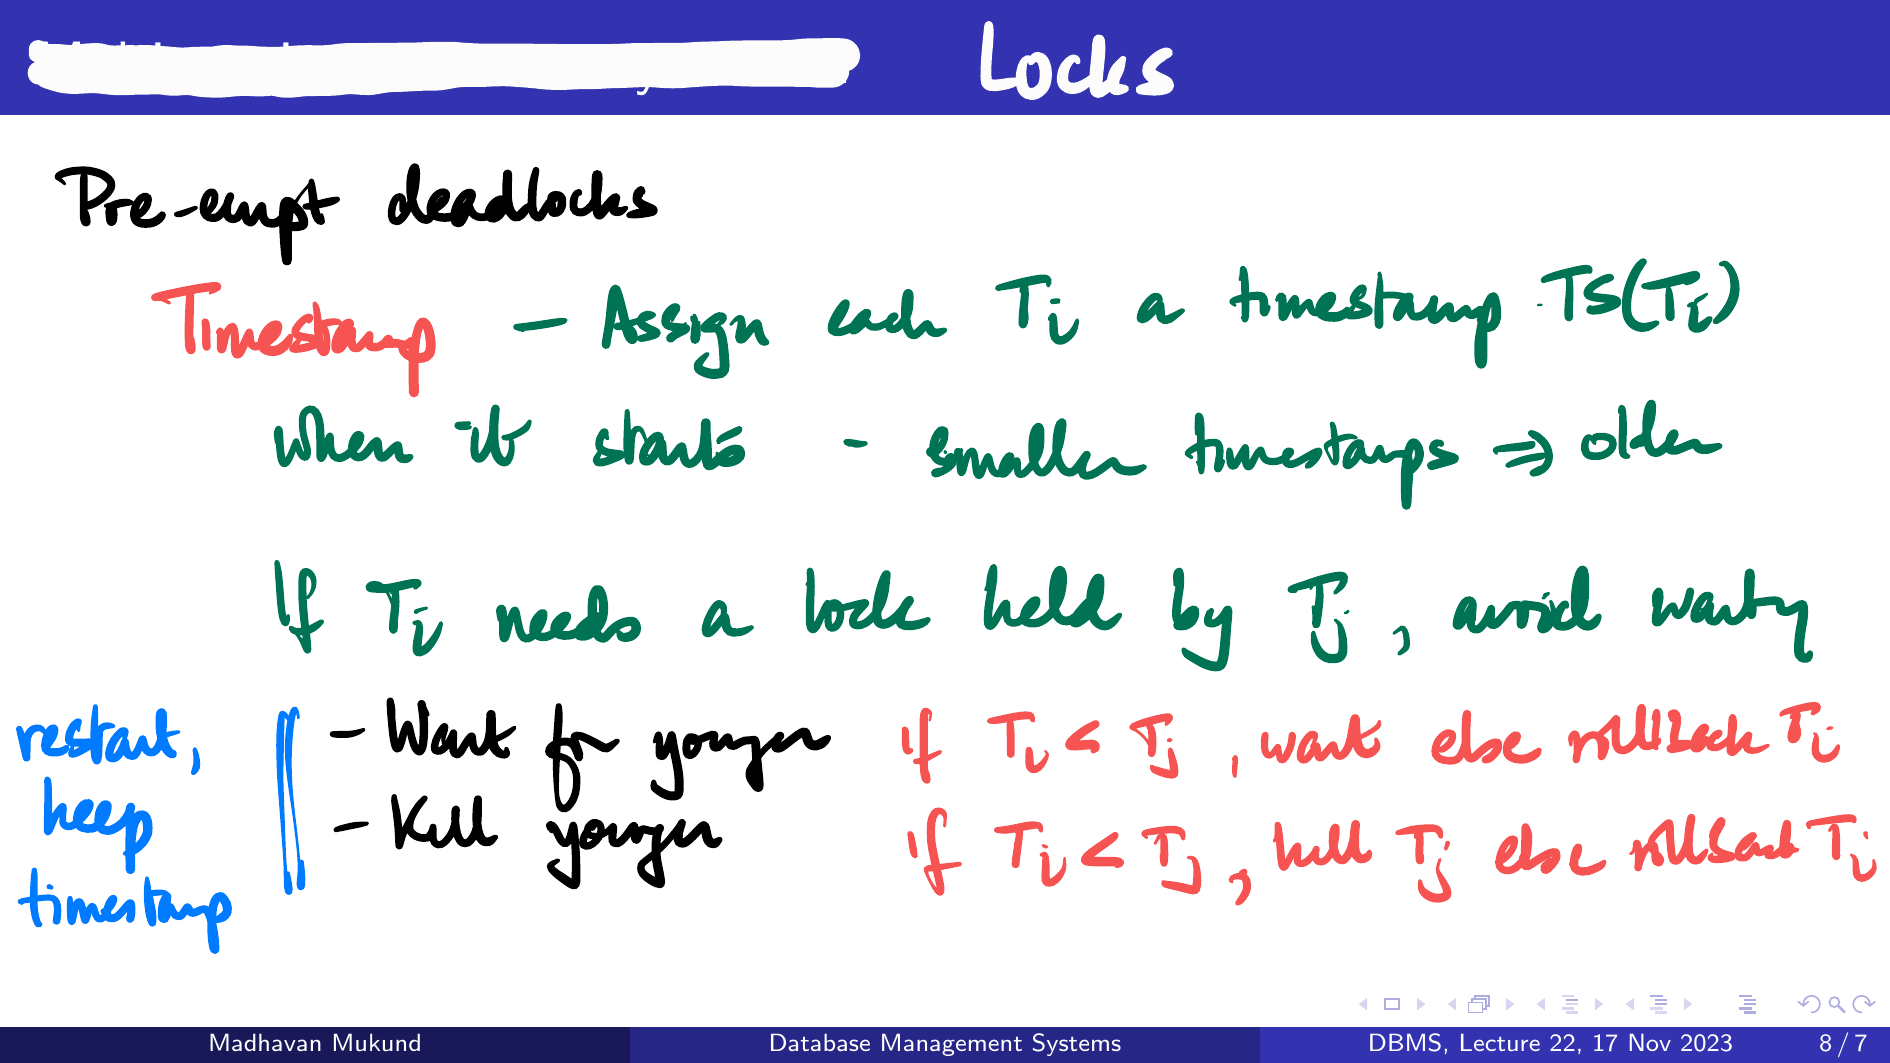 Locks
Pre-empt deadlocks
Timestamp - Assign each Ti a timestamp TS(Ti)
when it starts - smaller timestamps ⇒ older
If Ti needs a lock held by Tj, avoid waity
restart, - Wait for younger if Ti < Tj, wait else rollback Ti
keep - Kill younger if Ti < Tj, kill Tj else rollback Ti
timestamp
Madhavan Mukund Database Management Systems DBMS, Lecture 22, 17 Nov 2023 8 / 7